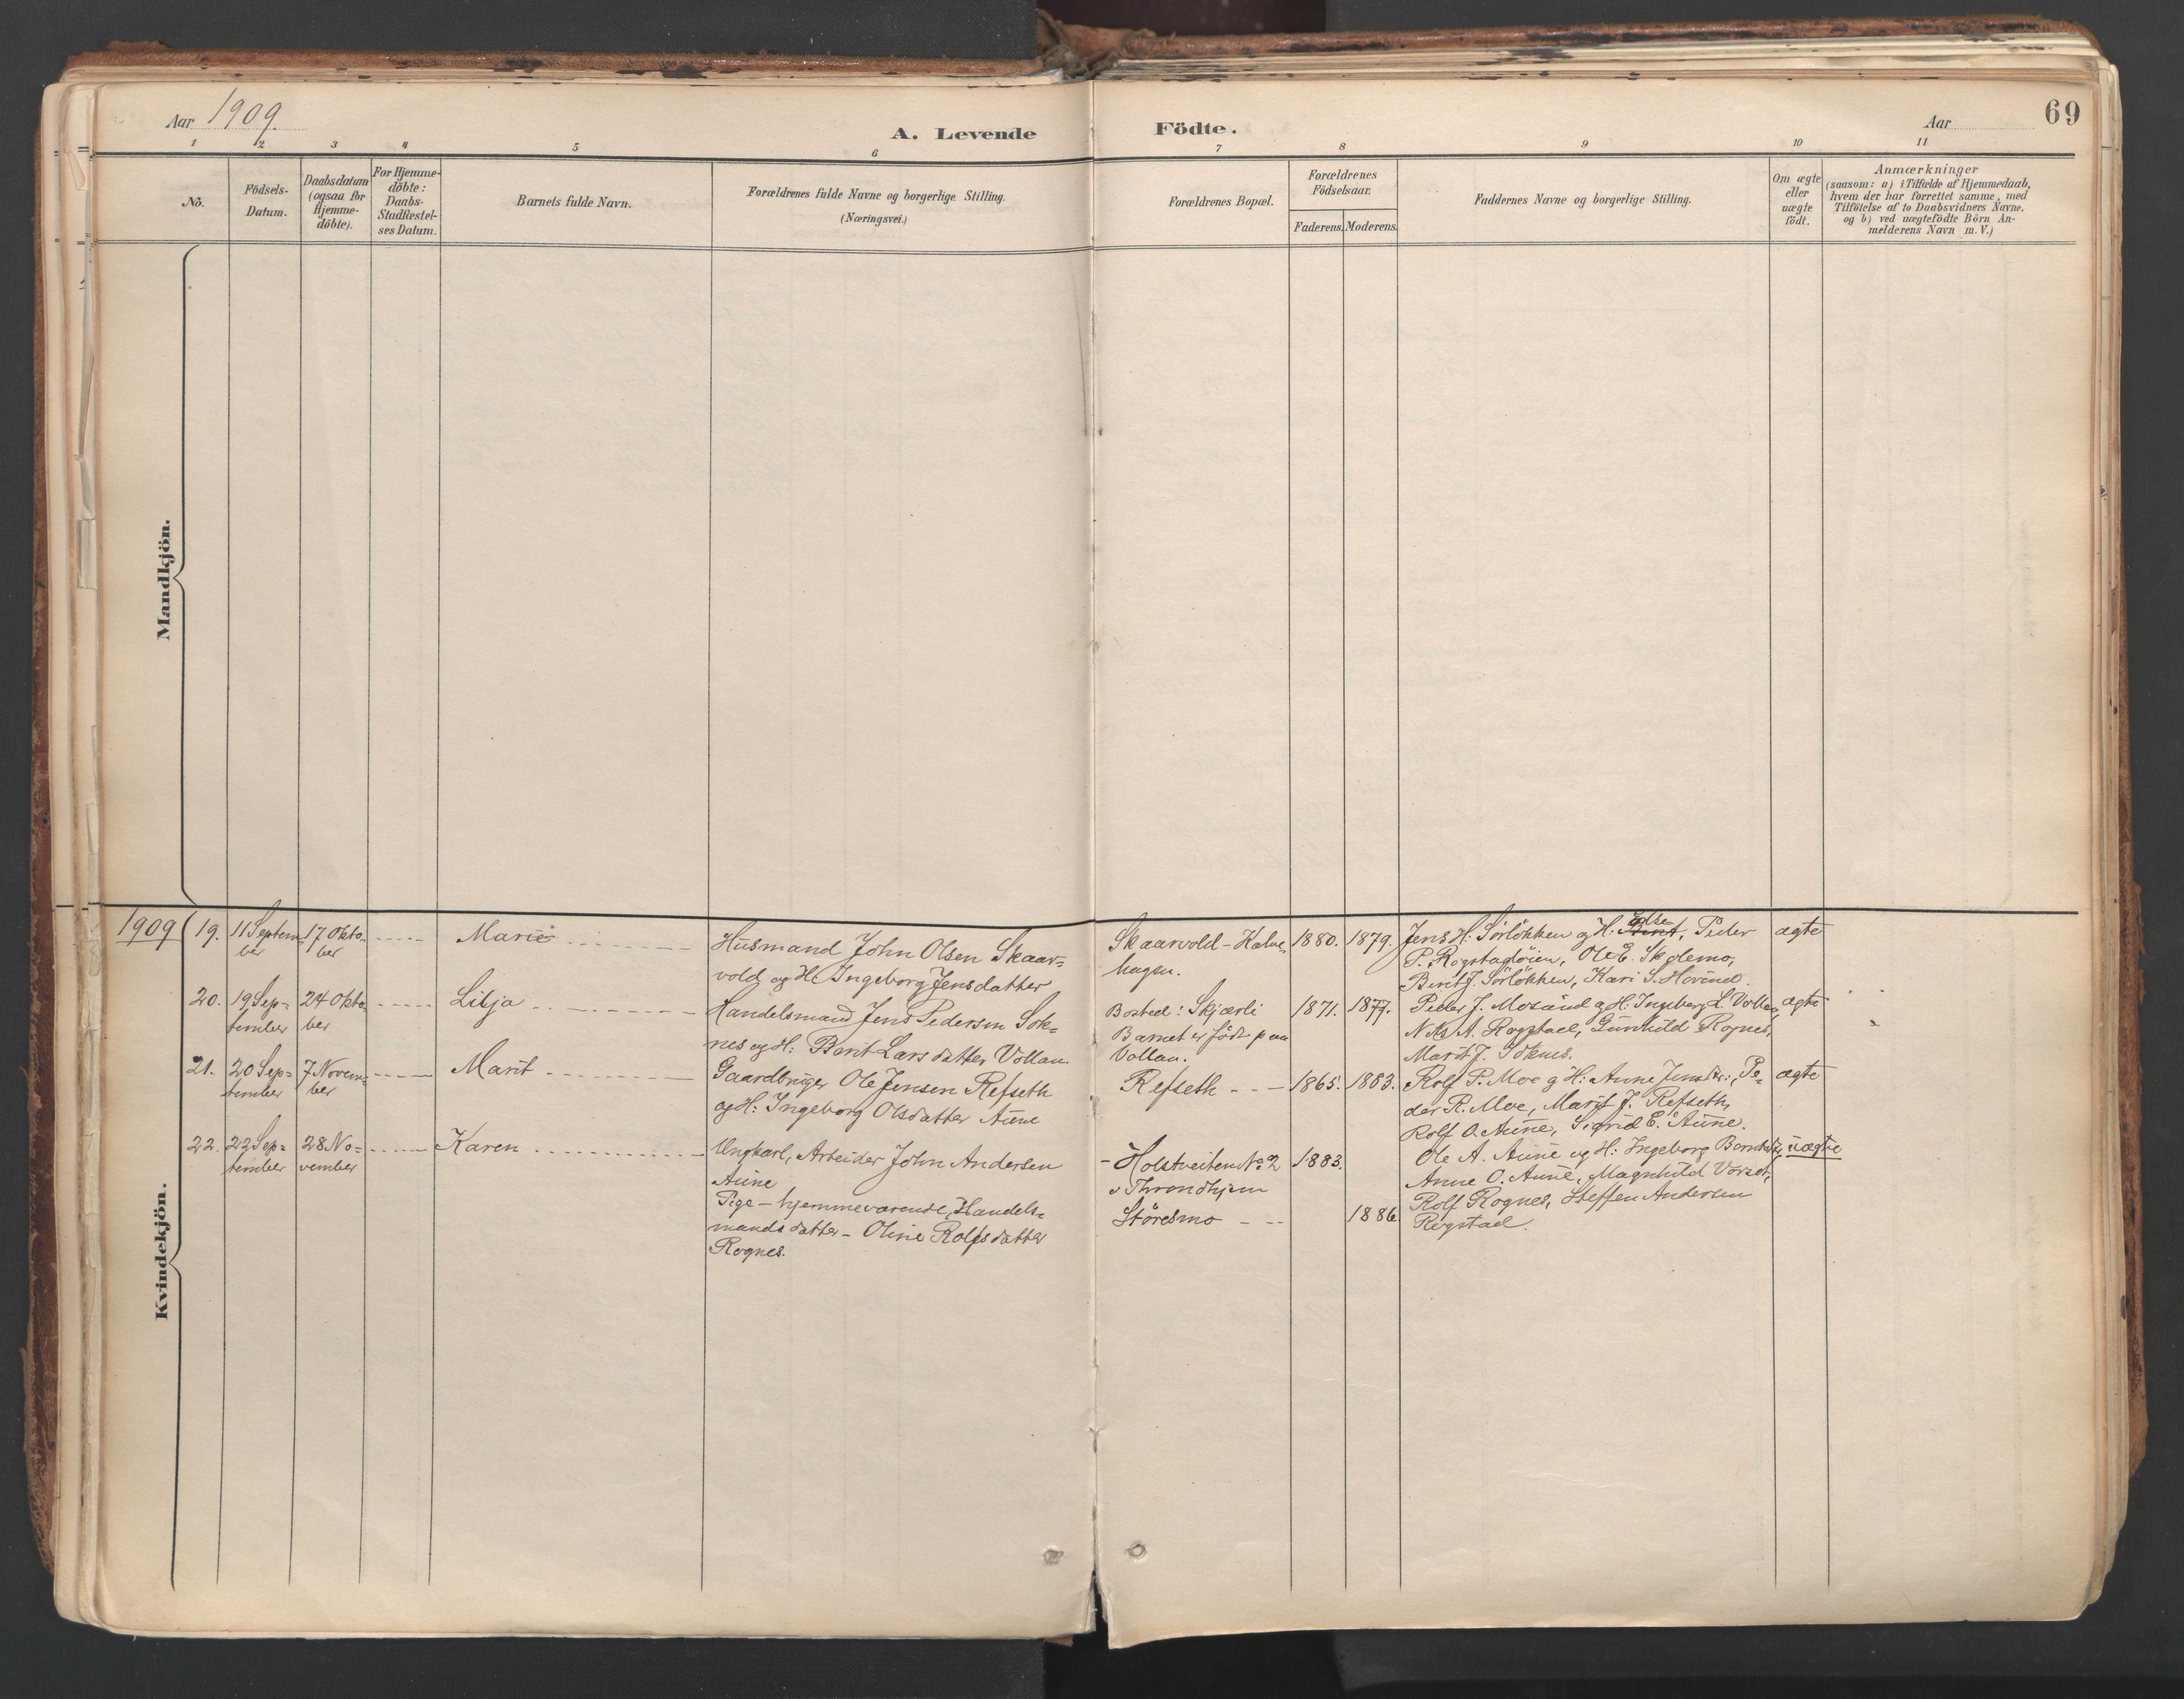 Aar 1909.
A. Levende Födte.
Aar
69
1 2 3 4 5 6 7 8 9 10 11
No.
Födsels-
Datum.
Daabsdatum
(ogsaa for
Hjemme-
döbte).
For Hjemme-
döbte:
Daabs-
Stadfæstel-
ses Datum.
Barnets fulde Navn.
Forældrenes fulde Navne og borgerlige Stilling.
(Næringsvei.)
Forældrenes Bopæl.
Forældrenes
Födselsaar.
Faderens. Moderens.
Faddernes Navne og borgerlige Stilling.
Om ægte
eller
uægte
födt.
Anmærkninger
(saasom: a) i Tilfælde af Hjemmedaab,
hvem der har forrettet samme, med
Tilföielse af to Daabsvidners Navne.
og b) ved uægtefödte Börn An-
melderens Navn m. V.)
Mandkjön.
Kvindekjön.
1909
19.
11 Septem
ber
17 Okto-
ber
Marie
Husmand John Olsen Skaar=
vold og H: Ingeborg Jensdatter
Skaarvold - Halve
hagen.
1880. 1879.
Jens H. Sörlökken og H: Berit, Peder
Else
P. Rogstadöien, Ole E. Skolemo,
Berit J. Sörlökken, Kari S. Hovind.
ægte
20.
19 Sep=
tember
24 Okto-
ber
Lilja
Handelsmand Jens Pedersen Sok=
nes og H: Berit Larsdatter Vollan.
Bosted: Skjærli
Barnet er född paa
Vollan.
1871. 1877.
Peder J. Mosand og H: Ingeborg L Vollan,
Nils A. Rogstad, Gunhild Rognes,
Marit J. Soknes.
ægte
21.
20 Sep=
tember
7 Novem=
ber
Marit
Gaardbruger Ole Jensen Refseth
og H: Ingeborg Olsdatter Aune
Refseth
1865. 1883.
Rolf P. Moe og H: Anne Jensdtr:, Pe=
der R. Moe, Marit J. Refseth,
Rolf O. Aune, Sigrid E. Aune.
ægte
22.
22 Sep=
tember
28 No=
vember
Karen
Ungkarl, Arbeider John Andersen
Aune
Pige - hjemmeværende, Handels=
mands datter - Oline Rolfsdatter
Rognes.
- Holstveiten No 2
Throndhjem
Störesmo
1883.
1886
Ole A. Aune og H: Ingeborg
Anne O. Aune, Magnhild Vorset,
Rolf Rognes, Steffen Andersen
Rogstad.
uægte